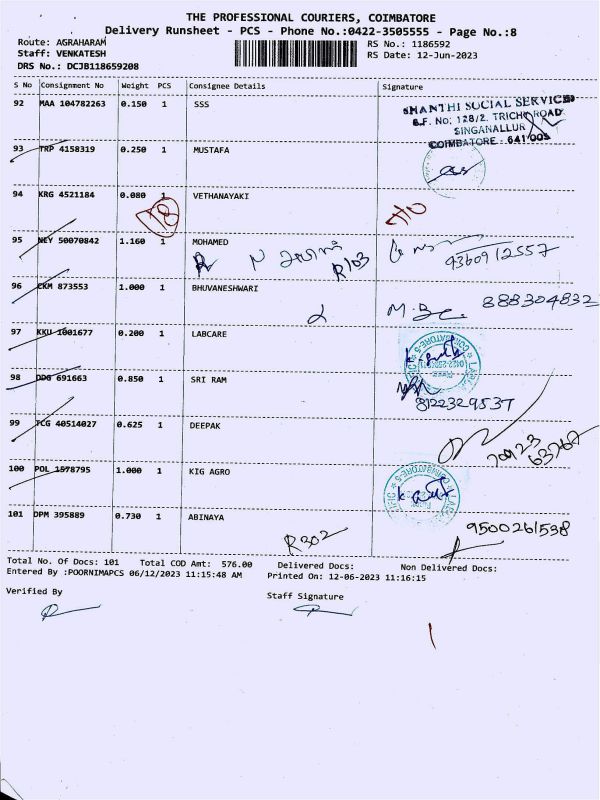 THE PROFESSIONAL COURIERS, COIMBATORE
Delivery Runsheet - PCS - Phone No.:0422-3505555 - Page No.:8
Route: AGRAHARAM RS No.: 1186592
Staff: VENKATESH RS Date: 12-Jun-2023
DRS No.: DCJB118659208
S No Consignment No Weight PCS Consignee Details Signature
92 MAA 104782263 0.150 1 SSS
SHANTHI SOCIAL SERVICE
S.F. No. 128/2. TRICHY ROAD
SINGANALLUR
COIMBATORE - 641 005
93 TRP 4158319 0.250 1 MUSTAFA
94 KRG 4521184 0.080 1 VETHANAYAKI
78
95 NEY 50070842 1.160 1 MOHAMED
R103 9360912557
96 CKM 873553 1.000 1 BHUVANESHWARI
888304832
97 KKU 1001677 0.200 1 LABCARE
98 DDG 691663 0.850 1 SRI RAM
8122329537
99 TCG 40514027 0.625 1 DEEPAK
70923
63767
100 POL 1578795 1.000 1 KIG AGRO
101 DPM 395889 0.730 1 ABINAYA
R302 9500261538
Total No. Of Docs: 101 Total COD Amt: 576.00 Delivered Docs: Non Delivered Docs:
Entered By :POORNIMAPCS 06/12/2023 11:15:48 AM Printed On: 12-06-2023 11:16:15
Verified By Staff Signature